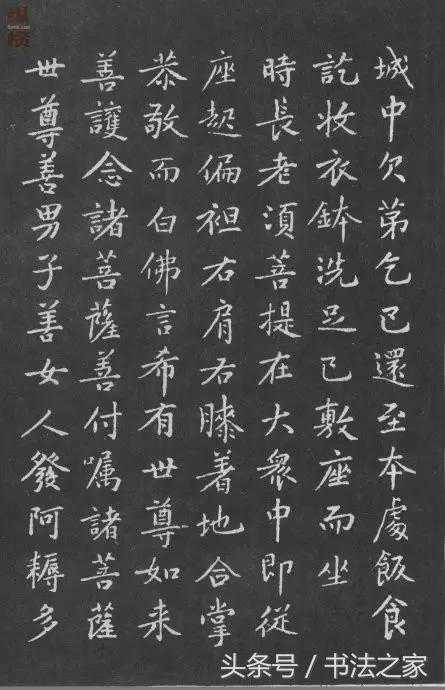 城中欠第乞已還至本處飯食
訖收衣鉢洗足已敷座而坐
時長老須菩提在大眾中即從
座起偏袒右肩右膝着地合掌
恭敬而白佛言希有世尊如来
善護念諸菩薩善付囑諸菩薩
世尊善男子善女人發阿耨多
头条号 / 书法之家